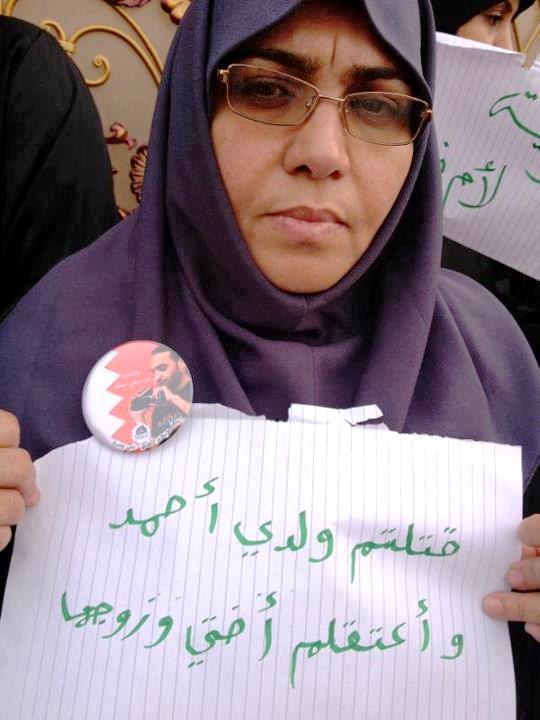 قتلتم ولدي أحمد
وأعتقلم أختي وزوجها
لأم